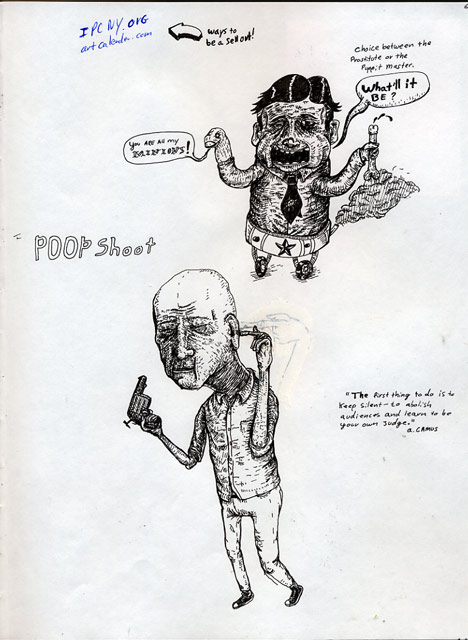 IPCNY.ORG
artCalendar.com
ways to
be a sellout!
Choice between the
Prostitute or the
Puppit Master.
What'll it
BE?
YOU ARE All my
MINIONS!
POOP Shoot
"The first thing to do is to
keep silent – to abolish
audiences and learn to be
your own judge."
a. CAMUS